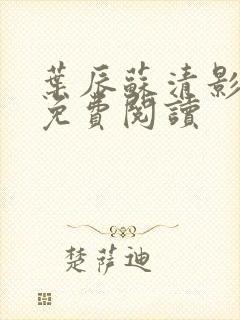 葉辰蘇清影
免費閱讀
楚薩迪